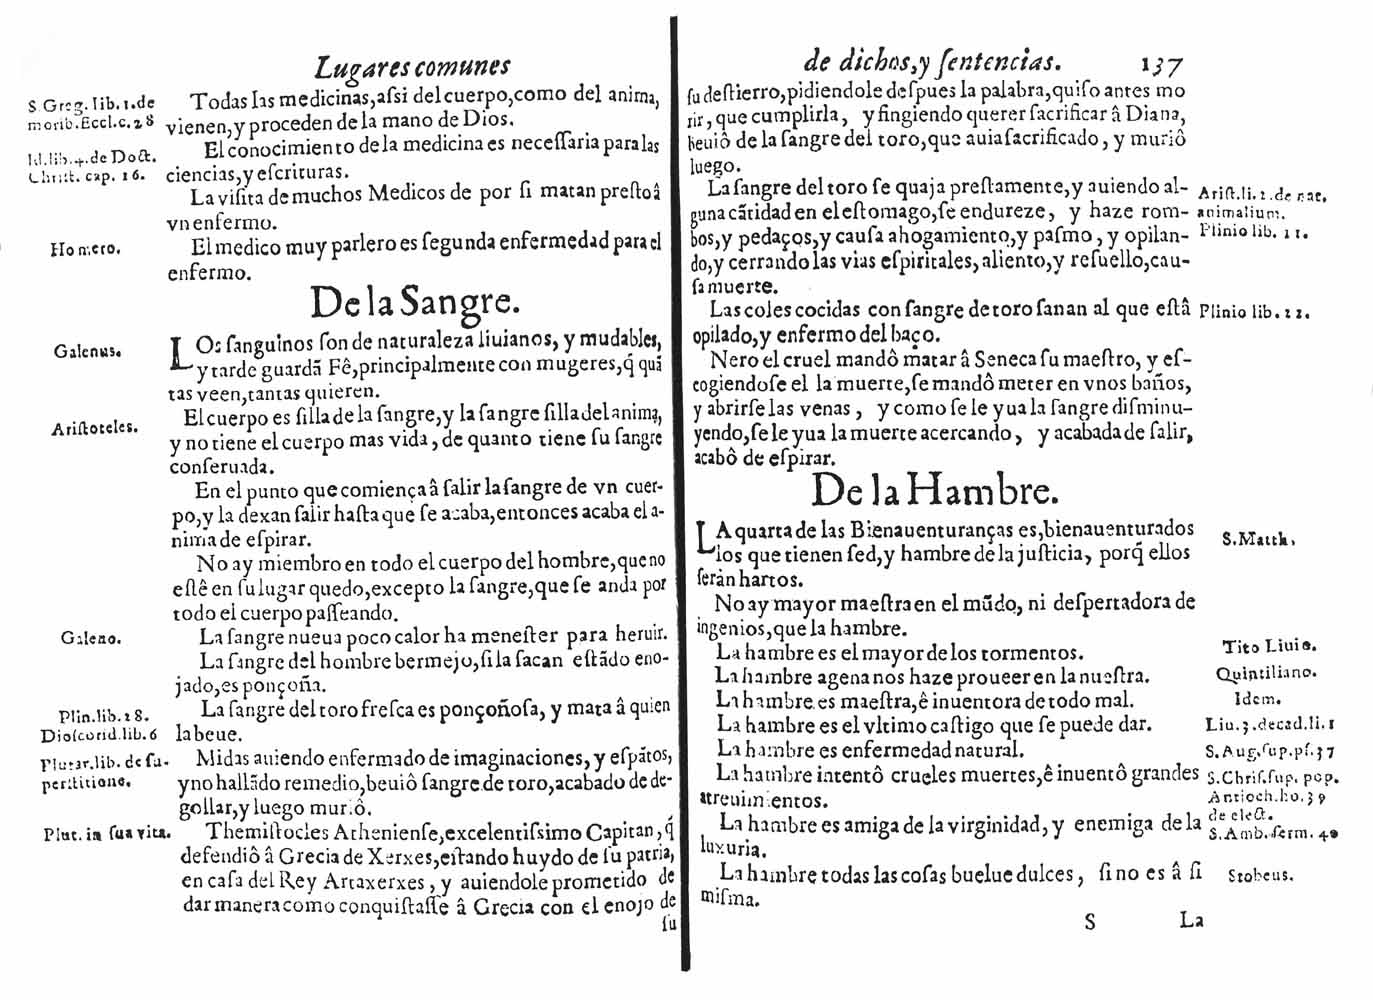 Lugares comunes
S. Greg. lib. 1. de
morib. Eccl. c. 28
Id. lib. 4. de Doct.
Christ. cap. 16.
Homero.
Todas las medicinas, aſsi del cuerpo, como del anima,
vienen, y proceden de la mano de Dios.
El conocimiento de la medicina es neceſſaria para las
ciencias, y eſcrituras.
La viſita de muchos Medicos de por ſi matan preſto â
vn enfermo.
El medico muy parlero es ſegunda enfermedad para el
enfermo.
De la Sangre.
Galenus.
Aristoteles.
Galeno.
Plin. lib. 28.
Dioſcorid. lib. 6
Plutar. lib. de ſu-
perſtitione.
Plut. in ſua vita.
LOs ſanguinos ſon de naturaleza liuianos, y mudables,
y tarde guardã Fê, principalmente con mugeres, q̃ quã
tas veen, tantas quieren.
El cuerpo es ſilla de la ſangre, y la ſangre ſilla del anima,
y no tiene el cuerpo mas vida, de quanto tiene ſu ſangre
conſeruada.
En el punto que comiença â ſalir la ſangre de vn cuer-
po, y la dexan ſalir haſta que ſe acaba, entonces acaba el a-
nima de eſpirar.
No ay miembro en todo el cuerpo del hombre, que no
eſtê en ſu lugar quedo, excepto la ſangre, que ſe anda por
todo el cuerpo paſſeando.
La ſangre nueua poco calor ha meneſter para heruir.
La ſangre del hombre bermejo, ſi la ſacan eſtãdo eno-
jado, es ponçoña.
La ſangre del toro freſca es ponçoñoſa, y mata â quien
la beue.
Midas auiendo enfermado de imaginaciones, y eſpãtos,
y no hallãdo remedio, beuiô ſangre de toro, acabado de de-
gollar, y luego muriô.
Themiſtocles Athenienſe, excelentiſsimo Capitan, q̃
defendiô â Grecia de Xerxes, eſtando huydo de ſu patria,
en caſa del Rey Artaxerxes, y auiendole prometido de
dar manera como conquiſtaſſe â Grecia con el enojo de
ſu
de dichos, y ſentencias. 137
ſu deſtierro, pidiendole deſpues la palabra, quiſo antes mo
rir, que cumplirla, y fingiendo querer ſacrificar â Diana,
beuiô de la ſangre del toro, que auia ſacrificado, y muriô
luego.
La ſangre del toro ſe quaja preſtamente, y auiendo al-
guna cãtidad en el eſtomago, ſe endureze, y haze rom-
bos, y pedaços, y cauſa ahogamiento, y paſmo, y opilan-
do, y cerrando las vias eſpiritales, aliento, y reſuello, cau-
ſa muerte.
Las coles cocidas con ſangre de toro ſanan al que eſtâ
opilado, y enfermo del baço.
Nero el cruel mandô matar â Seneca ſu maeſtro, y eſ-
cogiendoſe el la muerte, ſe mandô meter en vnos baños,
y abrirſe las venas, y como ſe le yua la ſangre diſminu-
yendo, ſe le yua la muerte acercando, y acabada de ſalir,
acabô de eſpirar.
Ariſt. li. 2. de nat.
animalium.
Plinio lib. 11.
Plinio lib. 22.
De la Hambre.
LA quarta de las Bienauenturanças es, bienauenturados
los que tienen ſed, y hambre de la juſticia, porq̃ ellos
ſerân hartos.
No ay mayor maeſtra en el mũdo, ni deſpertadora de
ingenios, que la hambre.
La hambre es el mayor de los tormentos.
La hambre agena nos haze proueer en la nueſtra.
La hambre es maeſtra, ê inuentora de todo mal.
La hambre es el vltimo caſtigo que ſe puede dar.
La hambre es enfermedad natural.
La hambre intentô crueles muertes, ê inuentô grandes
atreuimientos.
La hambre es amiga de la virginidad, y enemiga de la
luxuria.
La hambre todas las coſas buelue dulces, ſino es â ſi
miſma.
S. Matth.
Tito Liuio.
Quintiliano.
Idem.
Liu. 3. decad. li. 1
S. Aug. ſup. pſ. 37
S. Chriſ. ſup. pop.
Antioch. ho. 39
de elect.
S. Amb. ſerm. 40
Stobeus.
S La